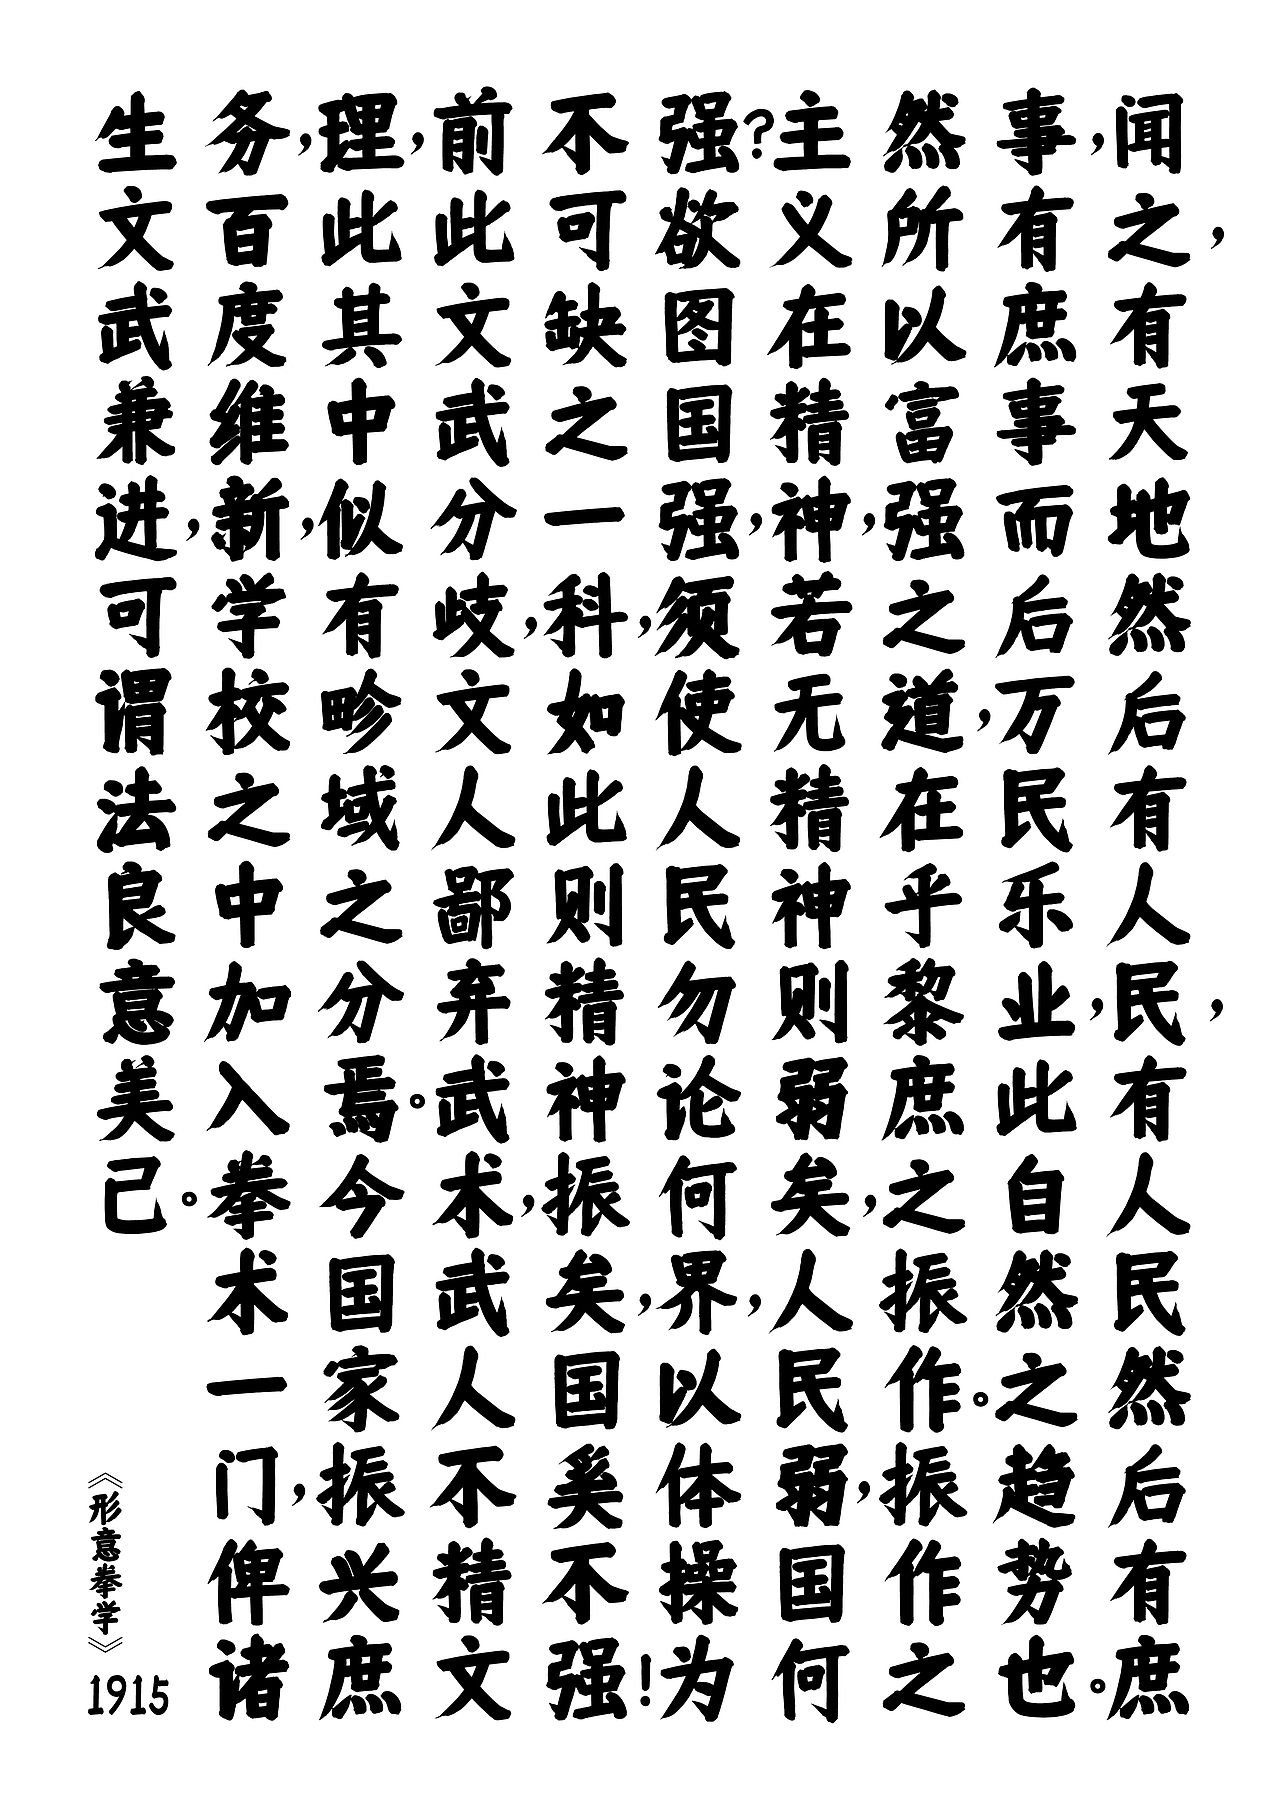 闻之，有天地然后有人民，有人民然后有庶
事，有庶事而后万民乐业，此自然之趋势也。
然所以富强之道，在乎黎庶之振作。振作之
主义在精神，若无精神则弱矣，人民弱，国何
强？欲图国强，须使人民勿论何界，以体操为
不可缺之一科，如此则精神振矣，国奚不强！
前此文武分歧，文人鄙弃武术，武人不精文
理，此其中似有畛域之分焉。今国家振兴庶
务，百度维新，学校之中加入拳术一门，俾诸
生文武兼进，可谓法良意美己。
《形意拳学》
1915